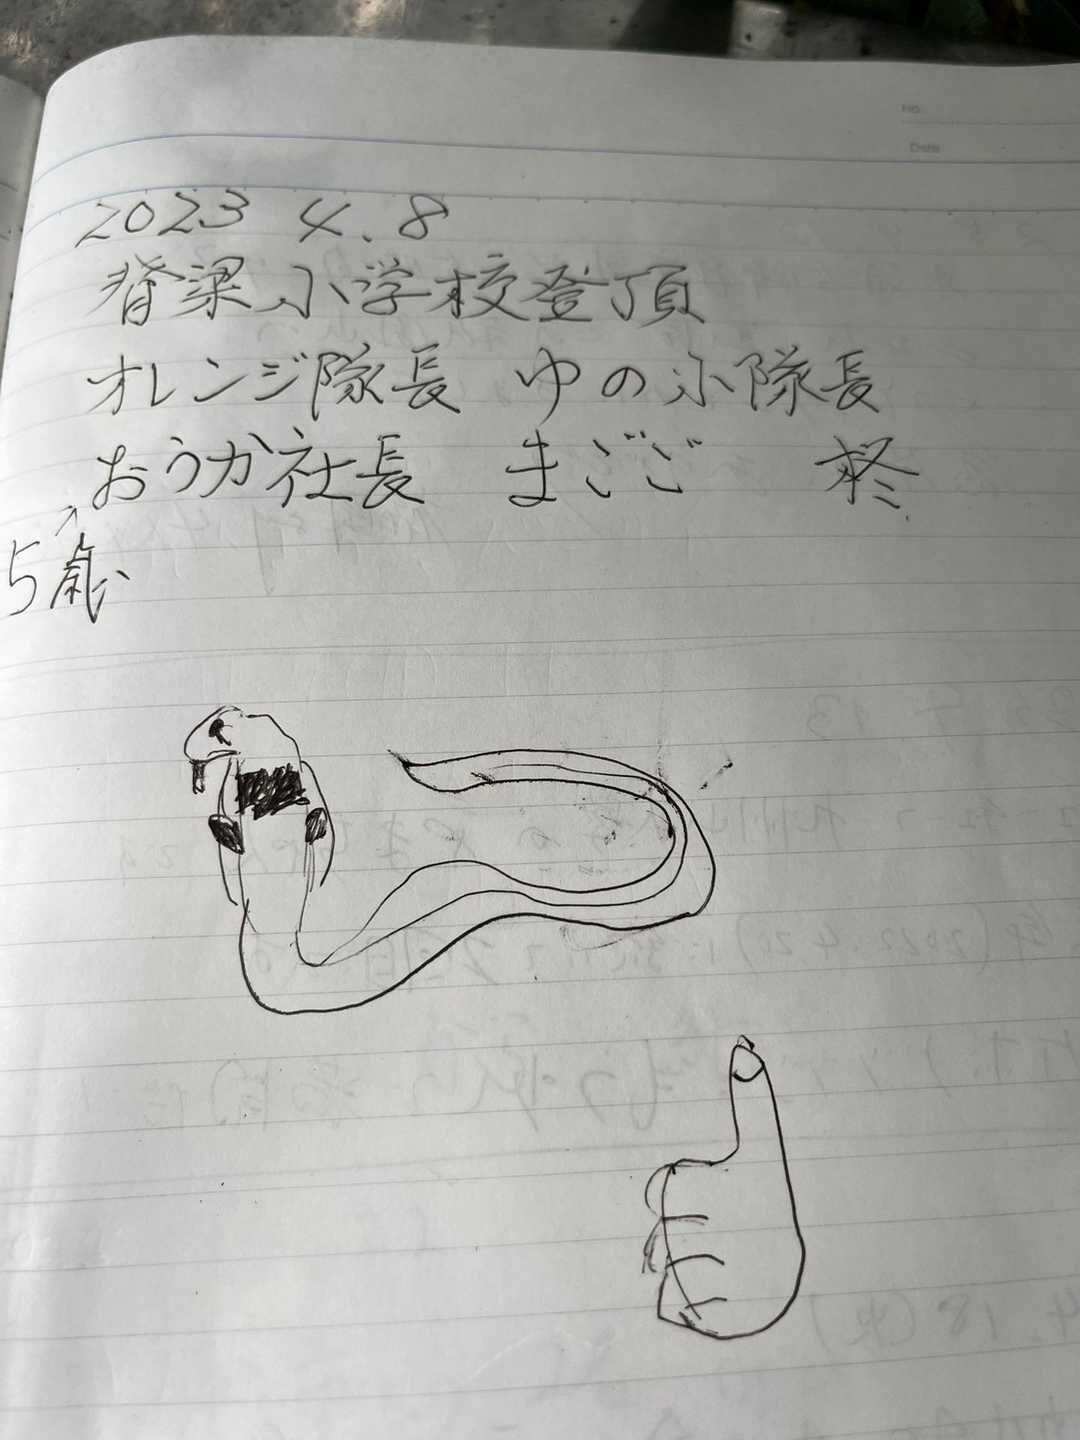 No.
Date
2023 4.8
脊梁小学校登頂
オレンジ隊長 ゆの小隊長
おうか社長 まごご 柊
↗
5歳